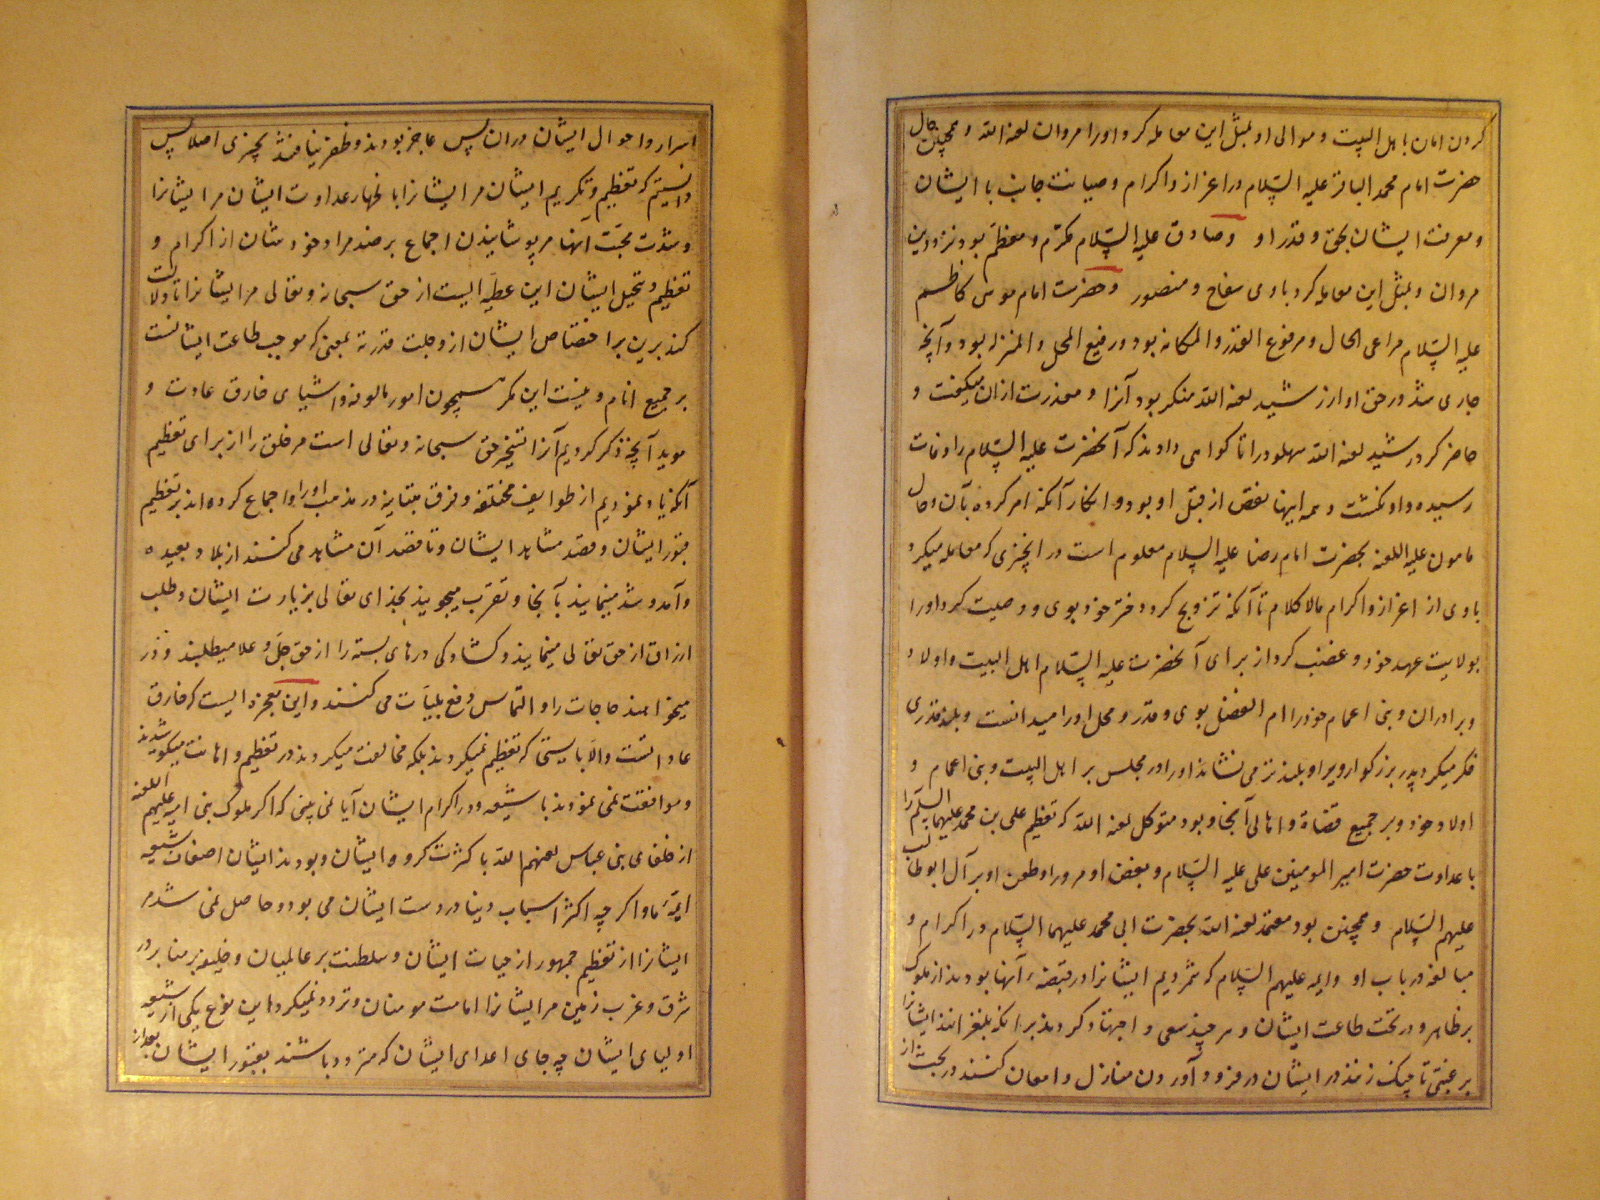 کردن امان با اهل البیت و موالی او بمثل این معامله کرد اورا مروان لعنه الله و همچنین حال
حضرت امام محمد الباقر علیه السّلام در اعزاز و اکرام و صیانت جانب با ایشان
و معرفت ایشان بحق و قدر او و صادق علیه السّلام مکرّم و معظّم بود نزد
مروان و بمثل این معامله کرد با وی سفاح و منصور و حضرت امام موسی کاظم
علیه السّلام مراعی الحال و مرفوع القدر و المکانه بود و رفیع المحل و المنزله بود و آنچه
جاری شد در حق او از رشید لعنه الله منکر بود آنرا و معذرت ازان میگفت و
حاضر کرد رشید لعنه الله شهود را تا گواهی دادند که آنحضرت علیه السّلام را وفات
رسیده و او نکشت و همه اینها بغض از قبل او بود و انکار آنکه امر کرده بآن و حال
مامون علیه اللعنه بحضرت امام رضا علیه السلام معلوم است در آنچیزی که معامله میکرد
با وی از اعزاز و اکرام مالا کلام تا آنکه تزویج کرد دختر خود بوی و وصیت کرد اورا
بولایت عهد خود و غضب کرد از برای آنحضرت علیه السّلام اهل البیت و اولاد
و برادران و بنی اعمام خود را ام الفضل بوی و قدر و محل اورا میدانست و بلند قدری
فکر میکرد پدر بزرگوار ویرا و بلندتر می نشاند اورا در مجلس بر اهل البیت و بنی اعمام و
اولاد خود و بر جمیع قضاة و اهالی آنجا و بود متوکل لعنه الله که تعظیم علی بن محمد علیهما السلام را
با عداوت حضرت امیر المومنین علی علیه السّلام و بغض او مر ورا و طعن او بر آل ابوطالب
علیهم السّلام و همچنین بود معتمد لعنه الله بحضرت ابی محمد علیهما السّلام در اکرام و
مبالغه در باب او و ایمه علیهم السّلام که شمردیم ایشانرا در قبضهٔ آنها بودند از ملوک
بر ظاهر و در تحت طاعت ایشان و هر چند سعی و اجتهاد کردند بر آنکه بلغزانند ایشانرا
بر عیبی تا چنگ زنند در ایشان در فرود آوردن منازل و امعان کنند در بحث از
اسرار و احوال ایشان دران پس عاجز بودند و ظفر نیافتند بچیزی اصلا پس
دانستیم که تعظیم و تکریم ایشان مر ایشانرا با اظهار عداوت ایشان مر ایشانرا
و شدت محبّت آنها مر پوشانیدن اجماع بر ضد مراد خودشان از اکرام و
تعظیم و تبجیل ایشان این عطیّه الیست از حق سبحانه و تعالی مر ایشانرا تا دلالت
کند برین بر اختصاص ایشان از و جلت قدرته بمعنی که موجب طاعت ایشانست
بر جمیع انام و نیست این مگر همچون امور مالوفه و اشیای خارق عادت و
موید آنچه ذکر کردیم آنرا تسخیر حق سبحانه و تعالی است مر خلق را از برای تعظیم
آنکه یاد نمودیم از طوایف مختلفه و فرق متباینه در مذهب و آرا و اجماع کرده اند بر تعظیم
قبور ایشان و قصد مشاهد ایشان و تا قصد آن مشاهد می کنند از بلاد بعیده
و آمد و شد مینمایند بآنجا و تقرب میجویند بخدای تعالی بزیارت ایشان و طلب
ارزاق از حق تعالی مینمایند و کشادکی درهای بسته را از حق جلّ و علا میطلبند و در
میخواهند حاجات را و التماس دفع بلیّات می کنند و این معجزه الیست که خارق
عاداتست والّا بایستی که تعظیم نمیکردند بلکه مخالفت میکردند در تعظیم و اهانت میکوشیدند
و موافقت نمی نمودند با شیعه و در اکرام ایشان آیا نمی بینی که اگر ملوک بنی امیه علیهم اللعنه
از خلفای بنی عباس لعنهم الله با کثرت گروه ایشان و بودند ایشان اضعاف شیعه
ایمّهٔ ما و اگر چه اکثر اسباب دنیا در دست ایشان می بود و حاصل نمی شد مر
ایشانرا از تعظیم جمهور از حیات ایشان و سلطنت بر عالمیان و خلیفه بر منابر در
شرق و غرب زمین مر ایشانرا امامت مومنان و تردد نمیکرد این نوع یکی از شیعه
اولیای ایشان چه جای اعدای ایشان که متردد باشند بقبور ایشان بعد از